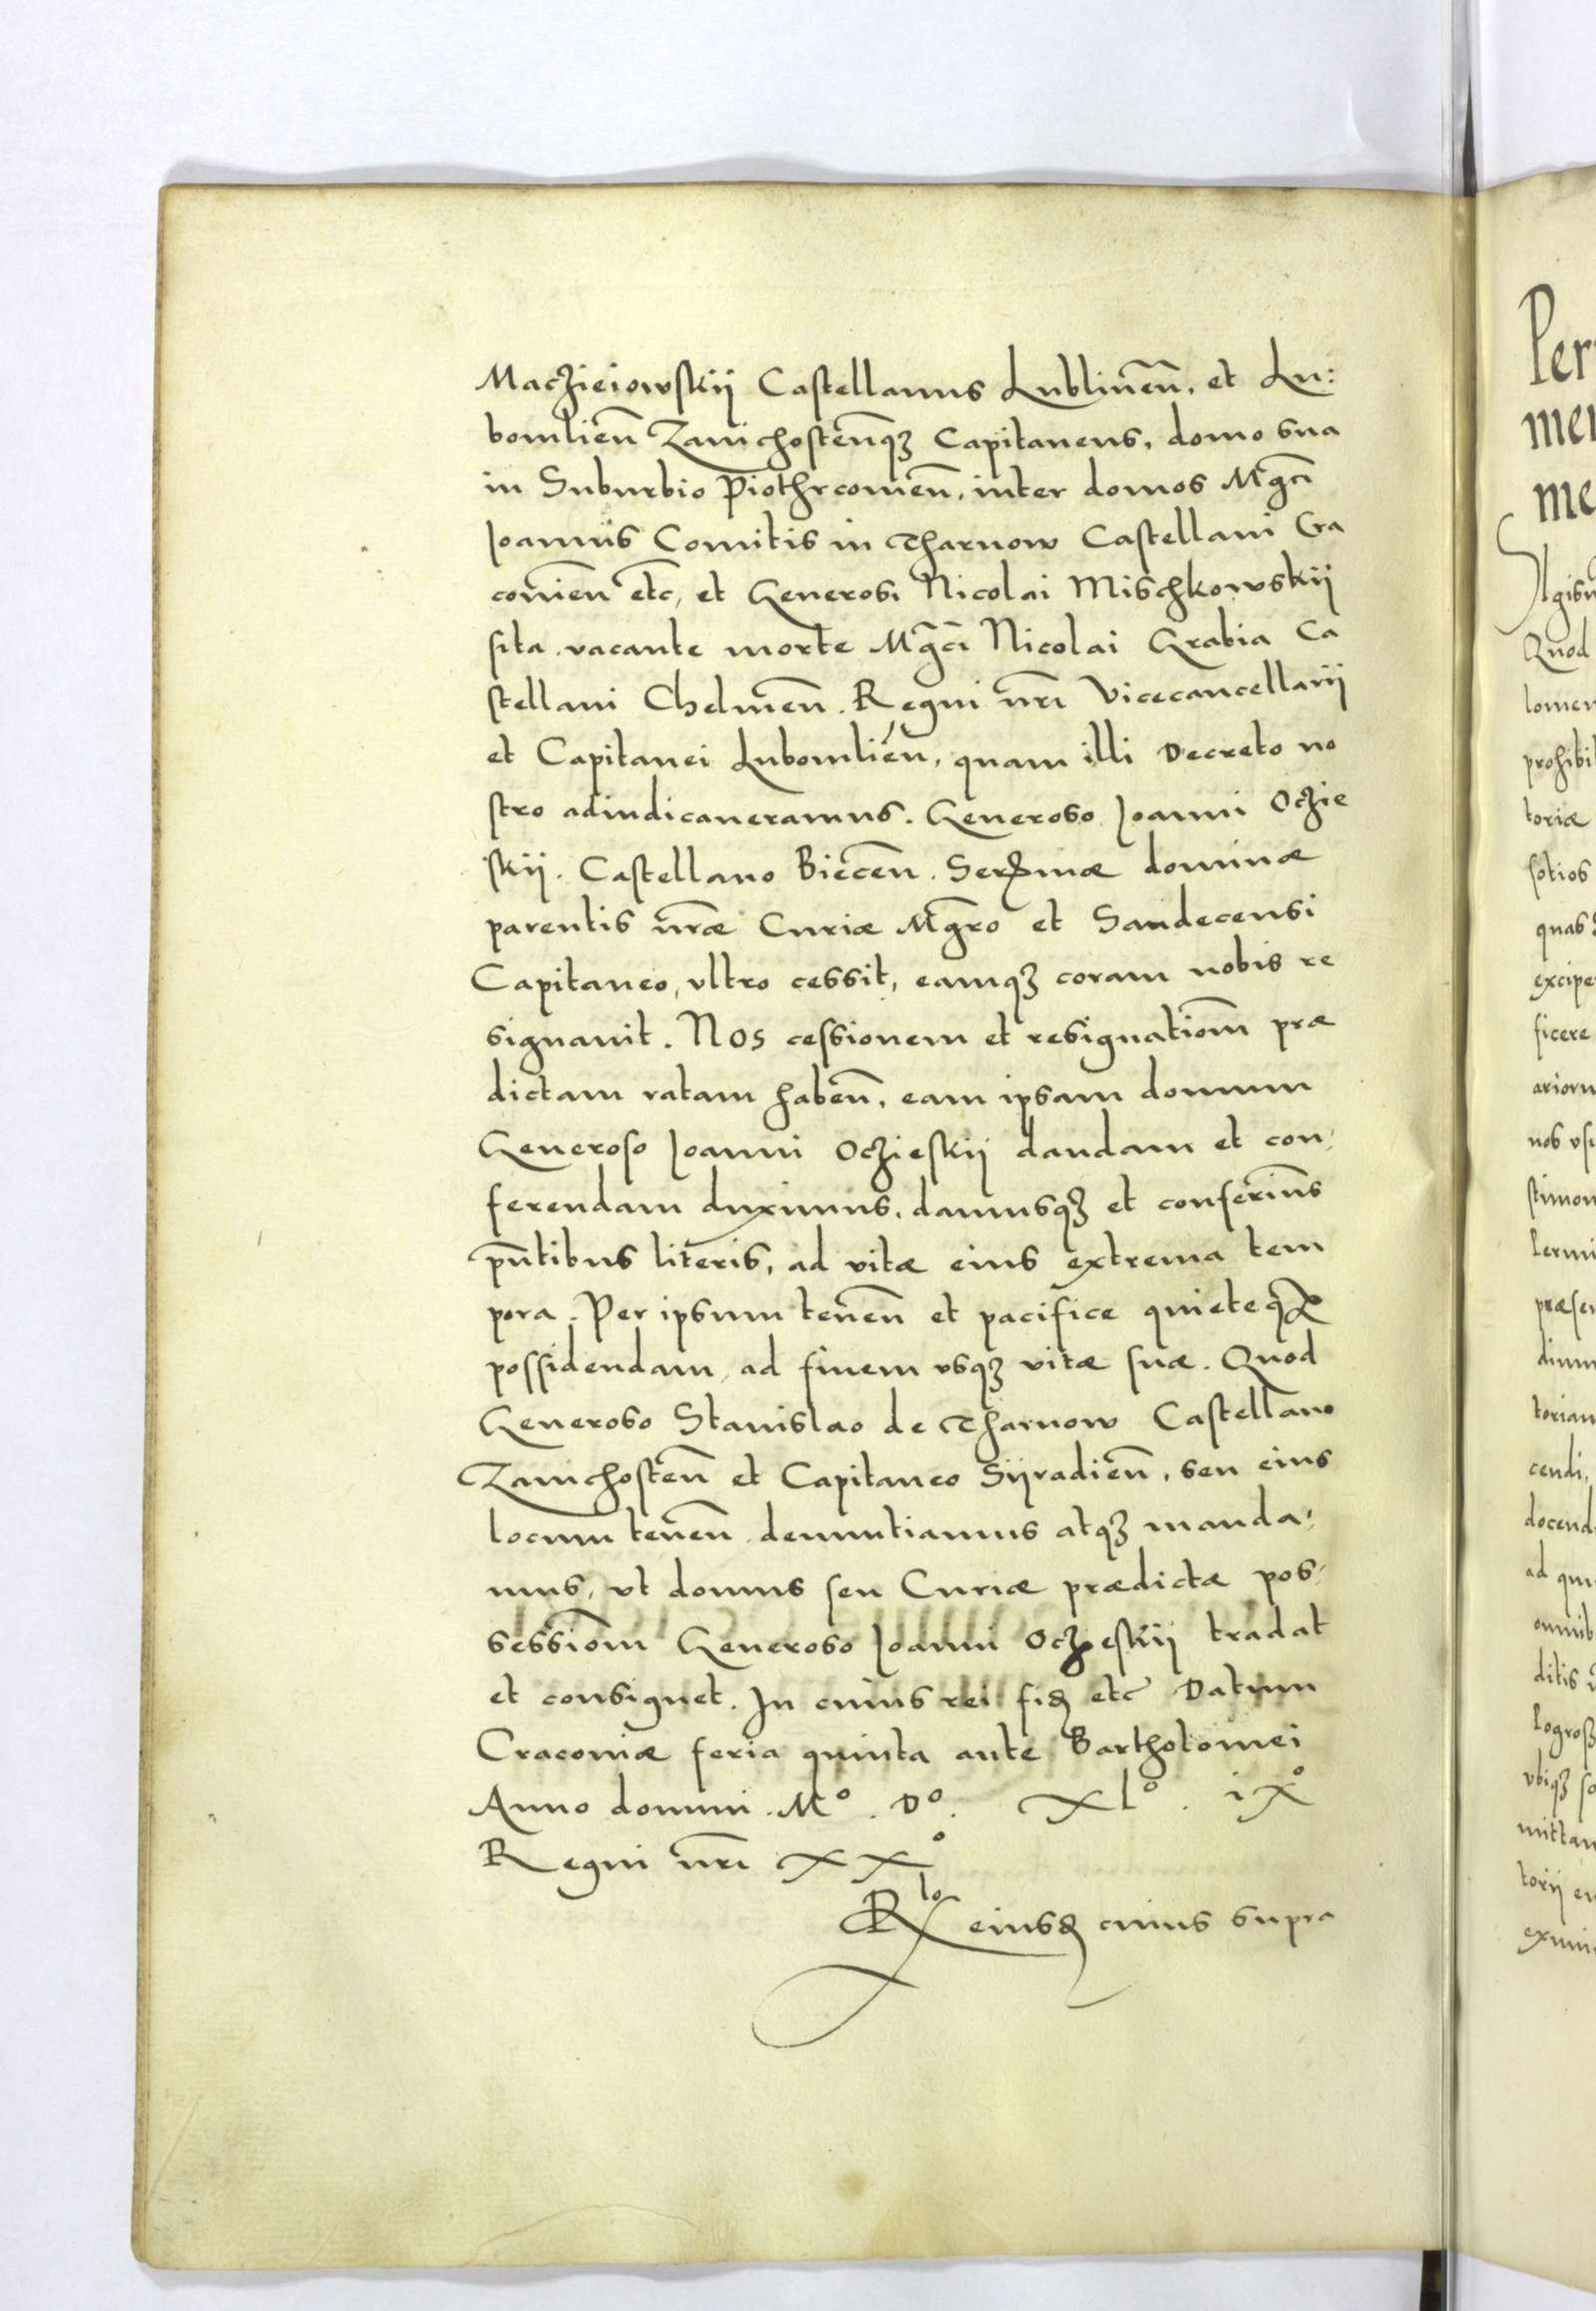 Maczieiowskij Castellanus Lublineñ, et Lu:
bomlieñ Zawichosteñqȝ Capitaneus, domo sua
in Suburbio Piothrcowieñ, inter domos Mgci
Joannis Comitis in Tharnow Castellani Cra
covieñ etc, et Generosi Nicolai Mischkowskij
sita vacante morte Mgci Nicolai Grabia Ca
stellani Chelmeñ. Regni nri Vicecancellarij
et Capitanei Lubomlień, quam illi Decreto no
stro adiudicaueramus. Generoso Joanni Oczie
skij. Castellano Bieceñ. Sermæ dominæ
parentis nræ Curiæ Mgro et Sandecensi
Capitaneo, vltro cessit, eamqȝ coram nobis re
signauit. Nos cessionem et resignatiom præ
dictam ratam habeñ, eam ipsam domum
Generoso Joanni Oczieskij dandam et con:
ferendam duximus, damusqȝ et conferims
pñtibus literis, ad vitæ eius extrema tem
pora. Per ipsum teneñ et pacifice quieteqȝ
possidendam, ad finem vsqȝ vitæ suæ. Quod
Generoso Stanislao de Tharnow Castellano
Zawichosteñ et Capitaneo Sijradieñ, seu eius
locum teneñ. denuntiamus atqȝ manda:
mus, vt domus seu Curiæ prædictæ pos:
sessiom Generoso Joanni Oczeskij tradat
et consignet. In cuius rei fid etc Datum
Cracoviæ feria quinta ante Bartholomei
Anno domini. Mº. Dº. XLº. iXº
Regni nri XXº
Rlo eiusd cuius supra
Per
me
me
Quod
lomen
prohibi
toriæ
sotios
quas
excipe
ficere
arioru
nos vsu
stimon
præsen
torian
cendi,
docend
ad qu
omnib
ditis
mittan
torij